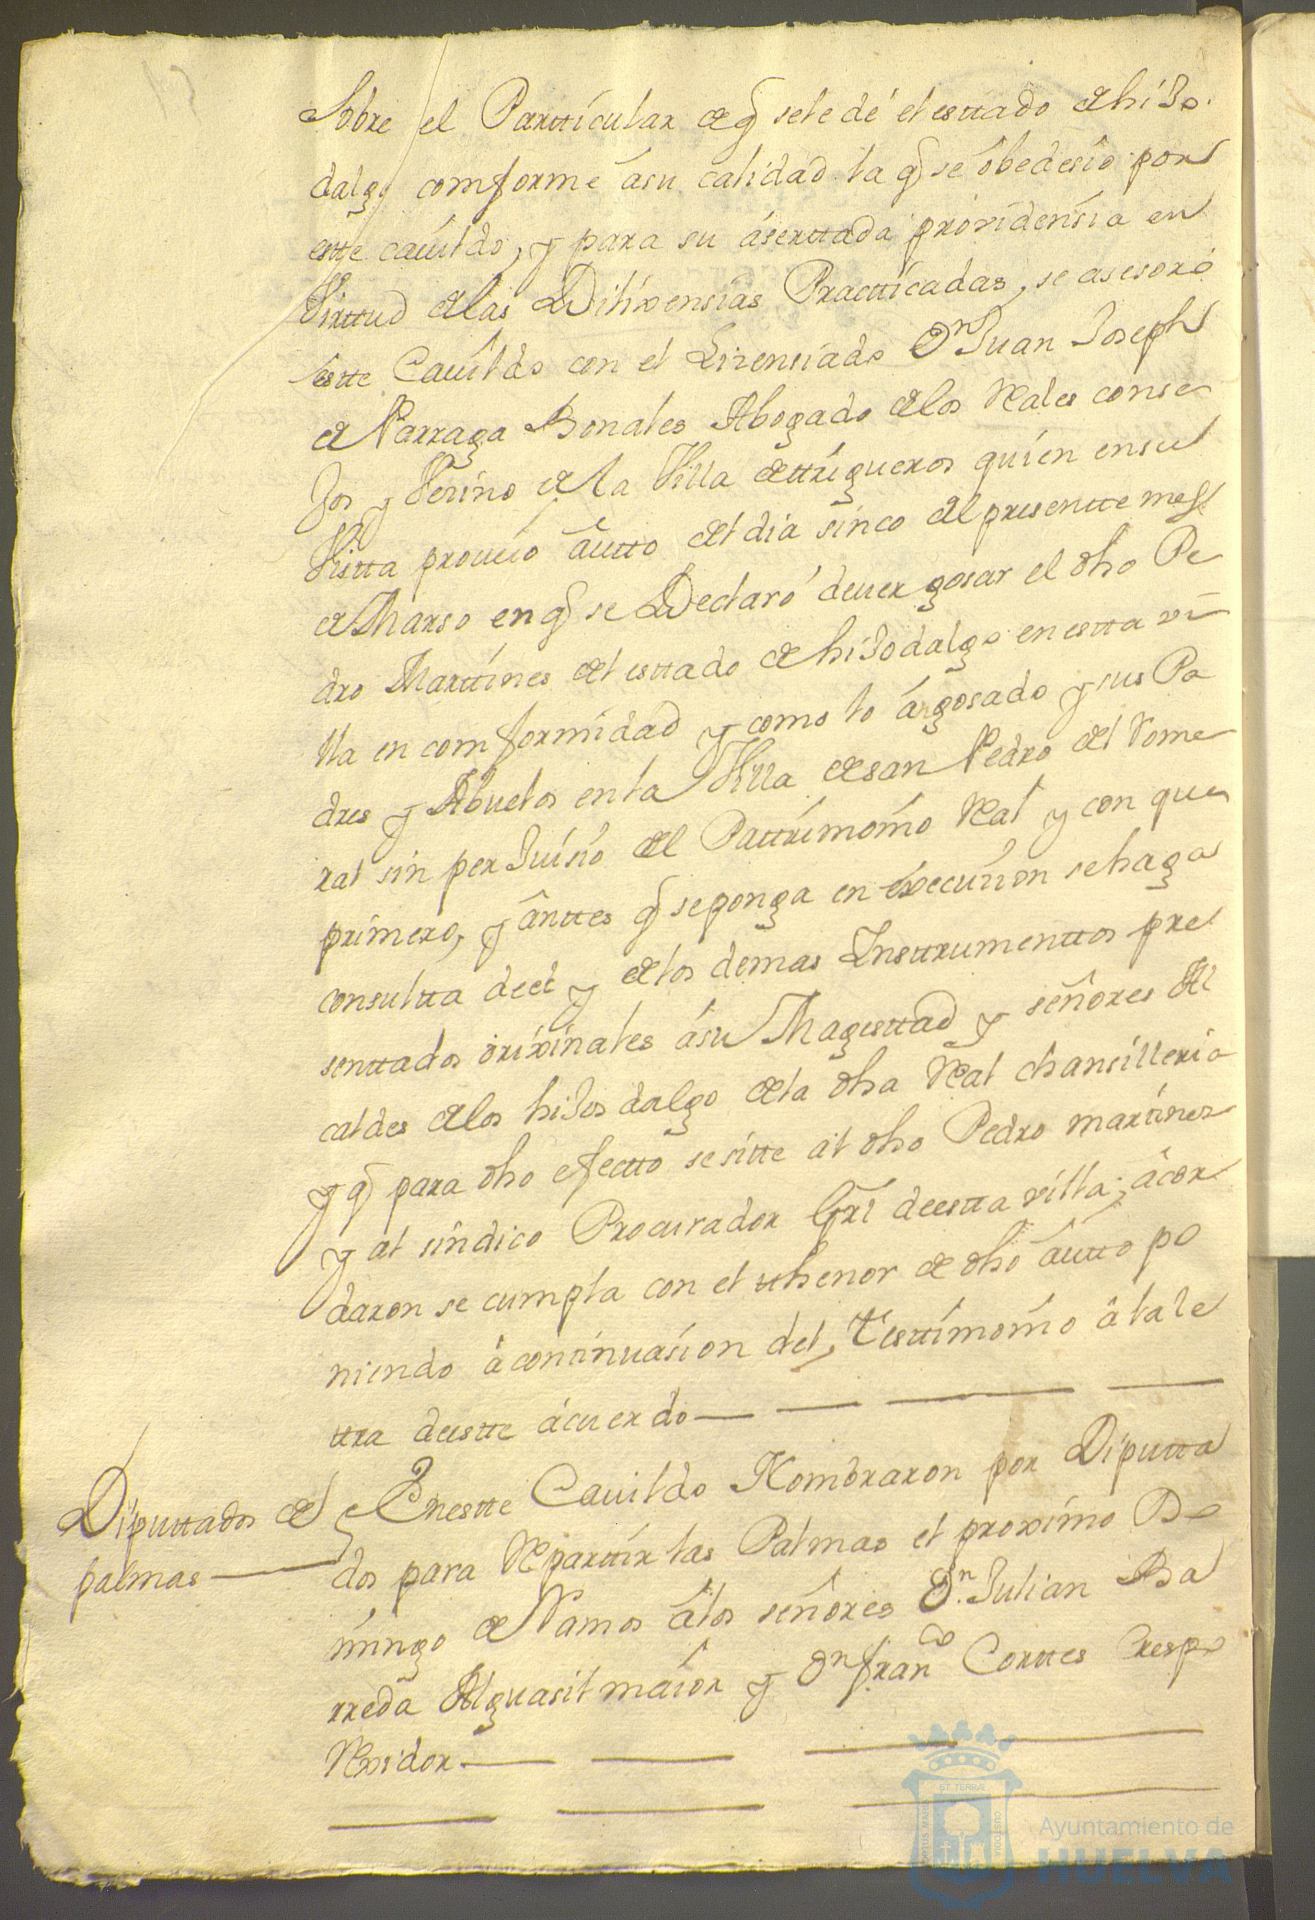 Sobre el Partticular de q̃ se le dé el esttado de hiJo
dalgo comforme ásu calidad la q̃ se obedesio por
estte cavildo, y para su ásserttada providensia en
Virttud de las Dilixensias Practticadas, se asesoró
estte Cavildo con el Lizensiado Dn Juan Joseph
de Parraga Bonales Abogado de los Reales conse
Jos y Vezino de la Villa de ttrigueros quien en su
Vistta proveio autto el dia sinco del presentte mes
de Marso en q̃ se Declaró dever gosar el dho Pe
dro Marttines del esttado de hiJodalgo en estta vi
lla en comformidad y como lo á gosado y sus Pa
dres y Abuelos en la Villa de san Pedro del Rome
ral sin perJuisio del Pattrimonio Real y con que
primero, y anttes q̃ se ponga en execuzion se haga
consultta de el y de los demas Insttrumenttos pre
senttados orixinales ásu Magesttad y señores Al
caldes de los hiJos dalgo de la dha Real chansilleria
y q̃ para dho efectto se sitte al dho Pedro martines
y al sindico Procurador Grãl de estta villa; ácor
daron se cumpla con el thenor de dho autto po
niendo á continuasion del, Testtimonio á la le
ttra de estte ácuerdo
Diputtados de
palmas
En estte Cavildo Nombraron por Diputta
dos para Reparttir las Palmas el proximo Do
mingo de Ramos á los señores Dn. Julian Ba
rreda Alguasil maior y Dn Franco Corttes Crespo
Rexidor
ET TERRÆ
Ayuntamiento de
HUELVA